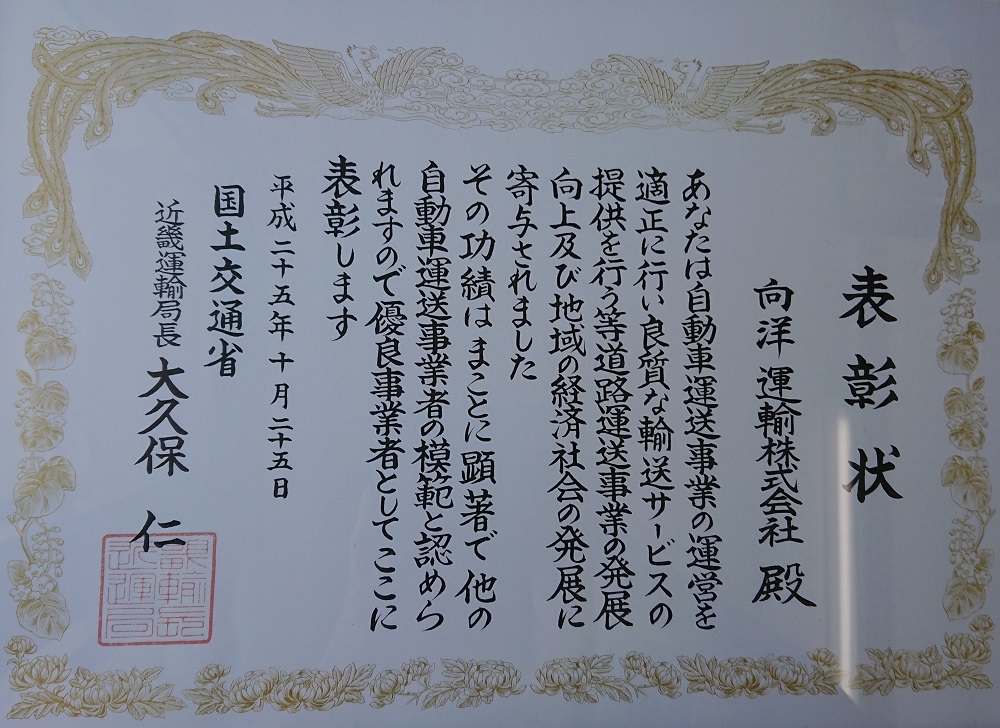 表彰状
向洋運輸株式会社 殿
あなたは自動車運送事業の運営を
適正に行い良質な輸送サービスの
提供を行う等道路運送事業の発展
向上及び地域の経済社会の発展に
寄与されました
その功績はまことに顕著で他の
自動車運送事業者の模範と認めら
れますので優良事業者としてここに
表彰します
平成二十五年十月二十五日
国土交通省
近畿運輸局長 大久保 仁